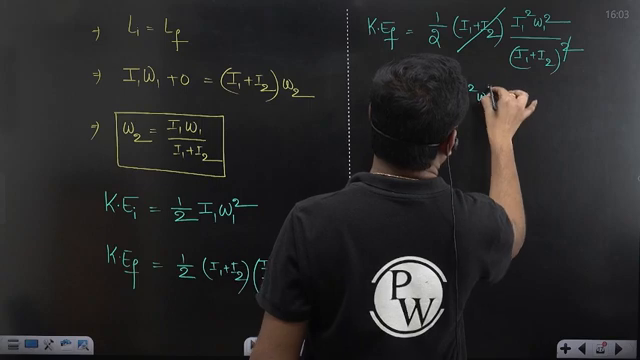 ⇒ L₁ = L_f
⇒ I₁ω₁ + 0 = (I₁+I₂) ω₂
⇒ ω₂ = I₁ω₁ / (I₁+I₂)
K.E_i = 1/2 I₁ω₁²
K.E_f = 1/2 (I₁+I₂)(I
K.E_f = 1/2 (I₁+I₂) I₁²ω₁² / (I₁+I₂)²
²ω
16:03
P
W